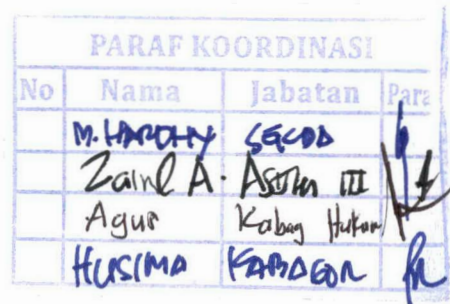 PARAF KOORDINASI
No Nama Jabatan Para
M. HARDHY SEKDA
Zainl A. Asisten III
Agus Kabag Hukum
HUSIMA KABAGOR